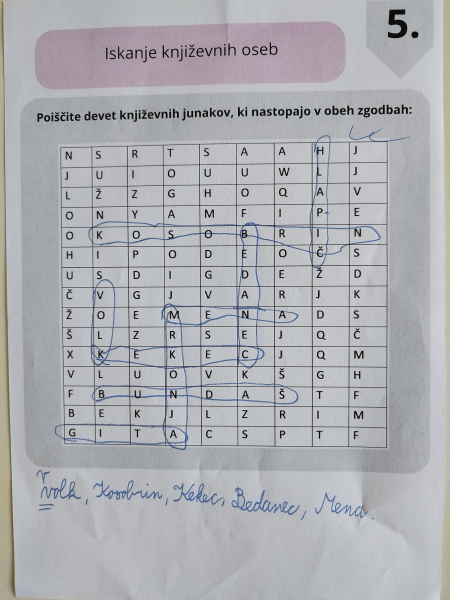 5.
Iskanje književnih oseb
Poiščite devet književnih junakov, ki nastopajo v obeh zgodbah:
N S R T S A A H J
J U I O U U W L J
L Ž Z G H O Q A V
O N Y A M F I P E
O K O S O B R I N
H I P O D E O Č S
U S D I G D E Ž D
Č V G J V A R J K
Ž O E M E N A D S
Š L Z R S E J Q Č
X K E K E C J Q M
V L U O V K Š G H
F B U N D A Š T F
B E K J L Z R I M
G I T A C S P T F
volk, Kosobrin, Kekec, Bedanec, Mena.